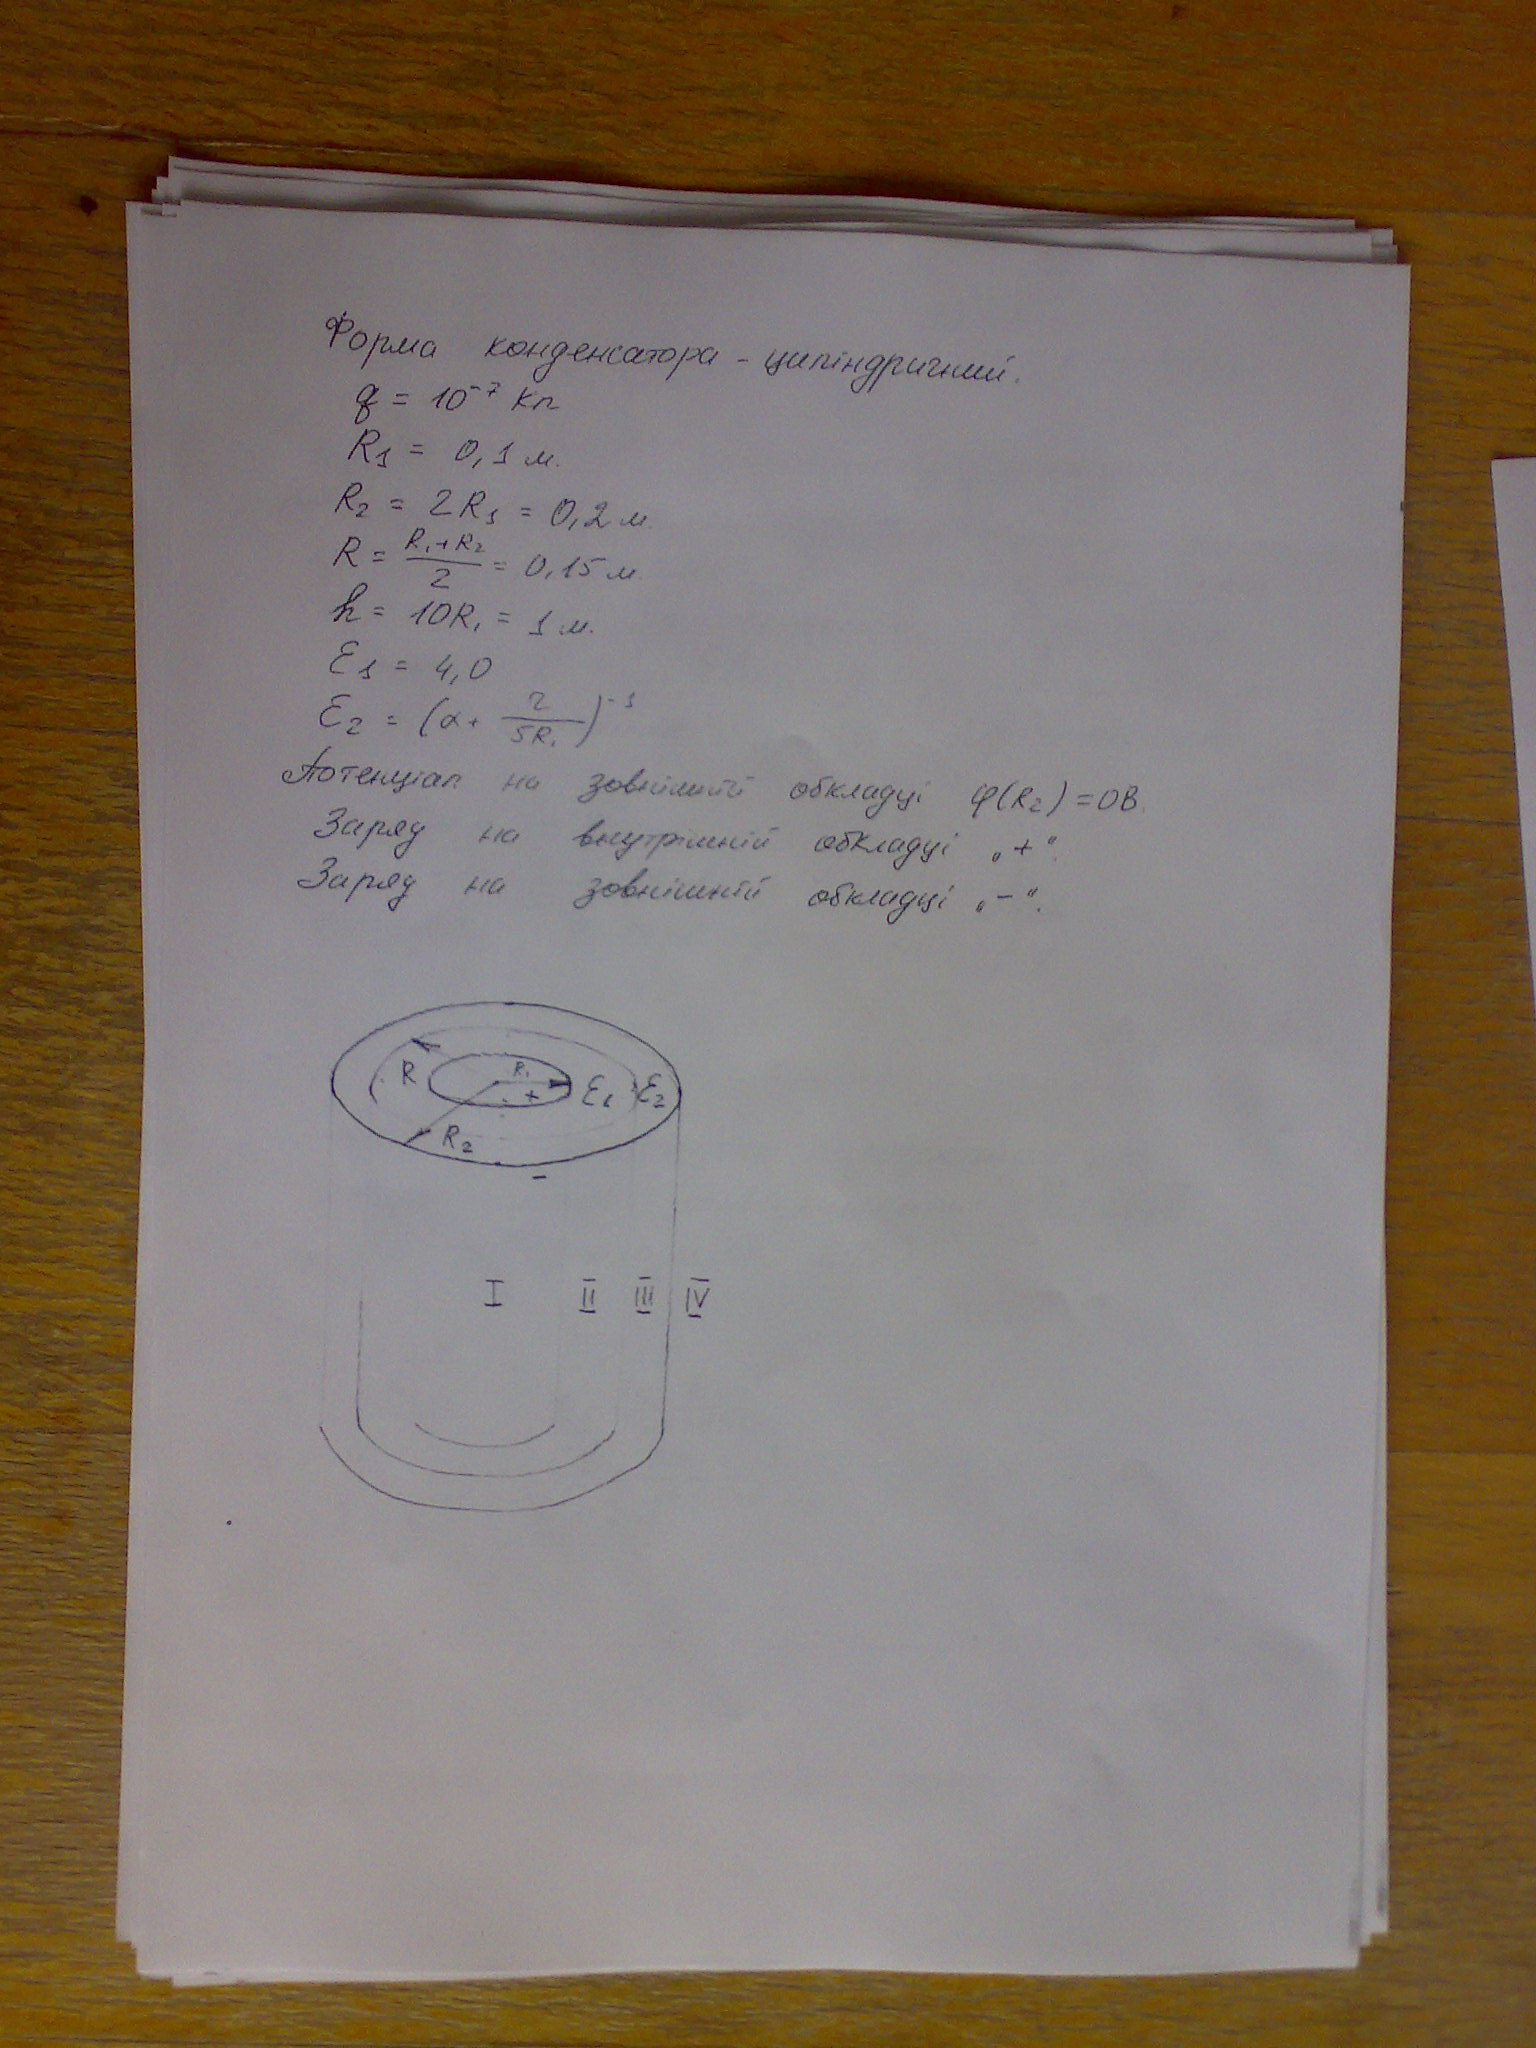 Форма конденсатора - циліндричний.
q = 10⁻⁷ Кл
R₁ = 0,1 м.
R₂ = 2R₁ = 0,2 м.
R = (R₁+R₂)/2 = 0,15 м.
h = 10R₁ = 1 м.
ε₁ = 4,0
ε₂ = (α + r/5R₁)⁻¹
Потенціал на зовнішній обкладці φ(R₂) = 0В.
Заряд на внутрішній обкладці „+“.
Заряд на зовнішній обкладці „-“.
R R₁ ε₁ ε₂
+
R₂
-
I II III IV